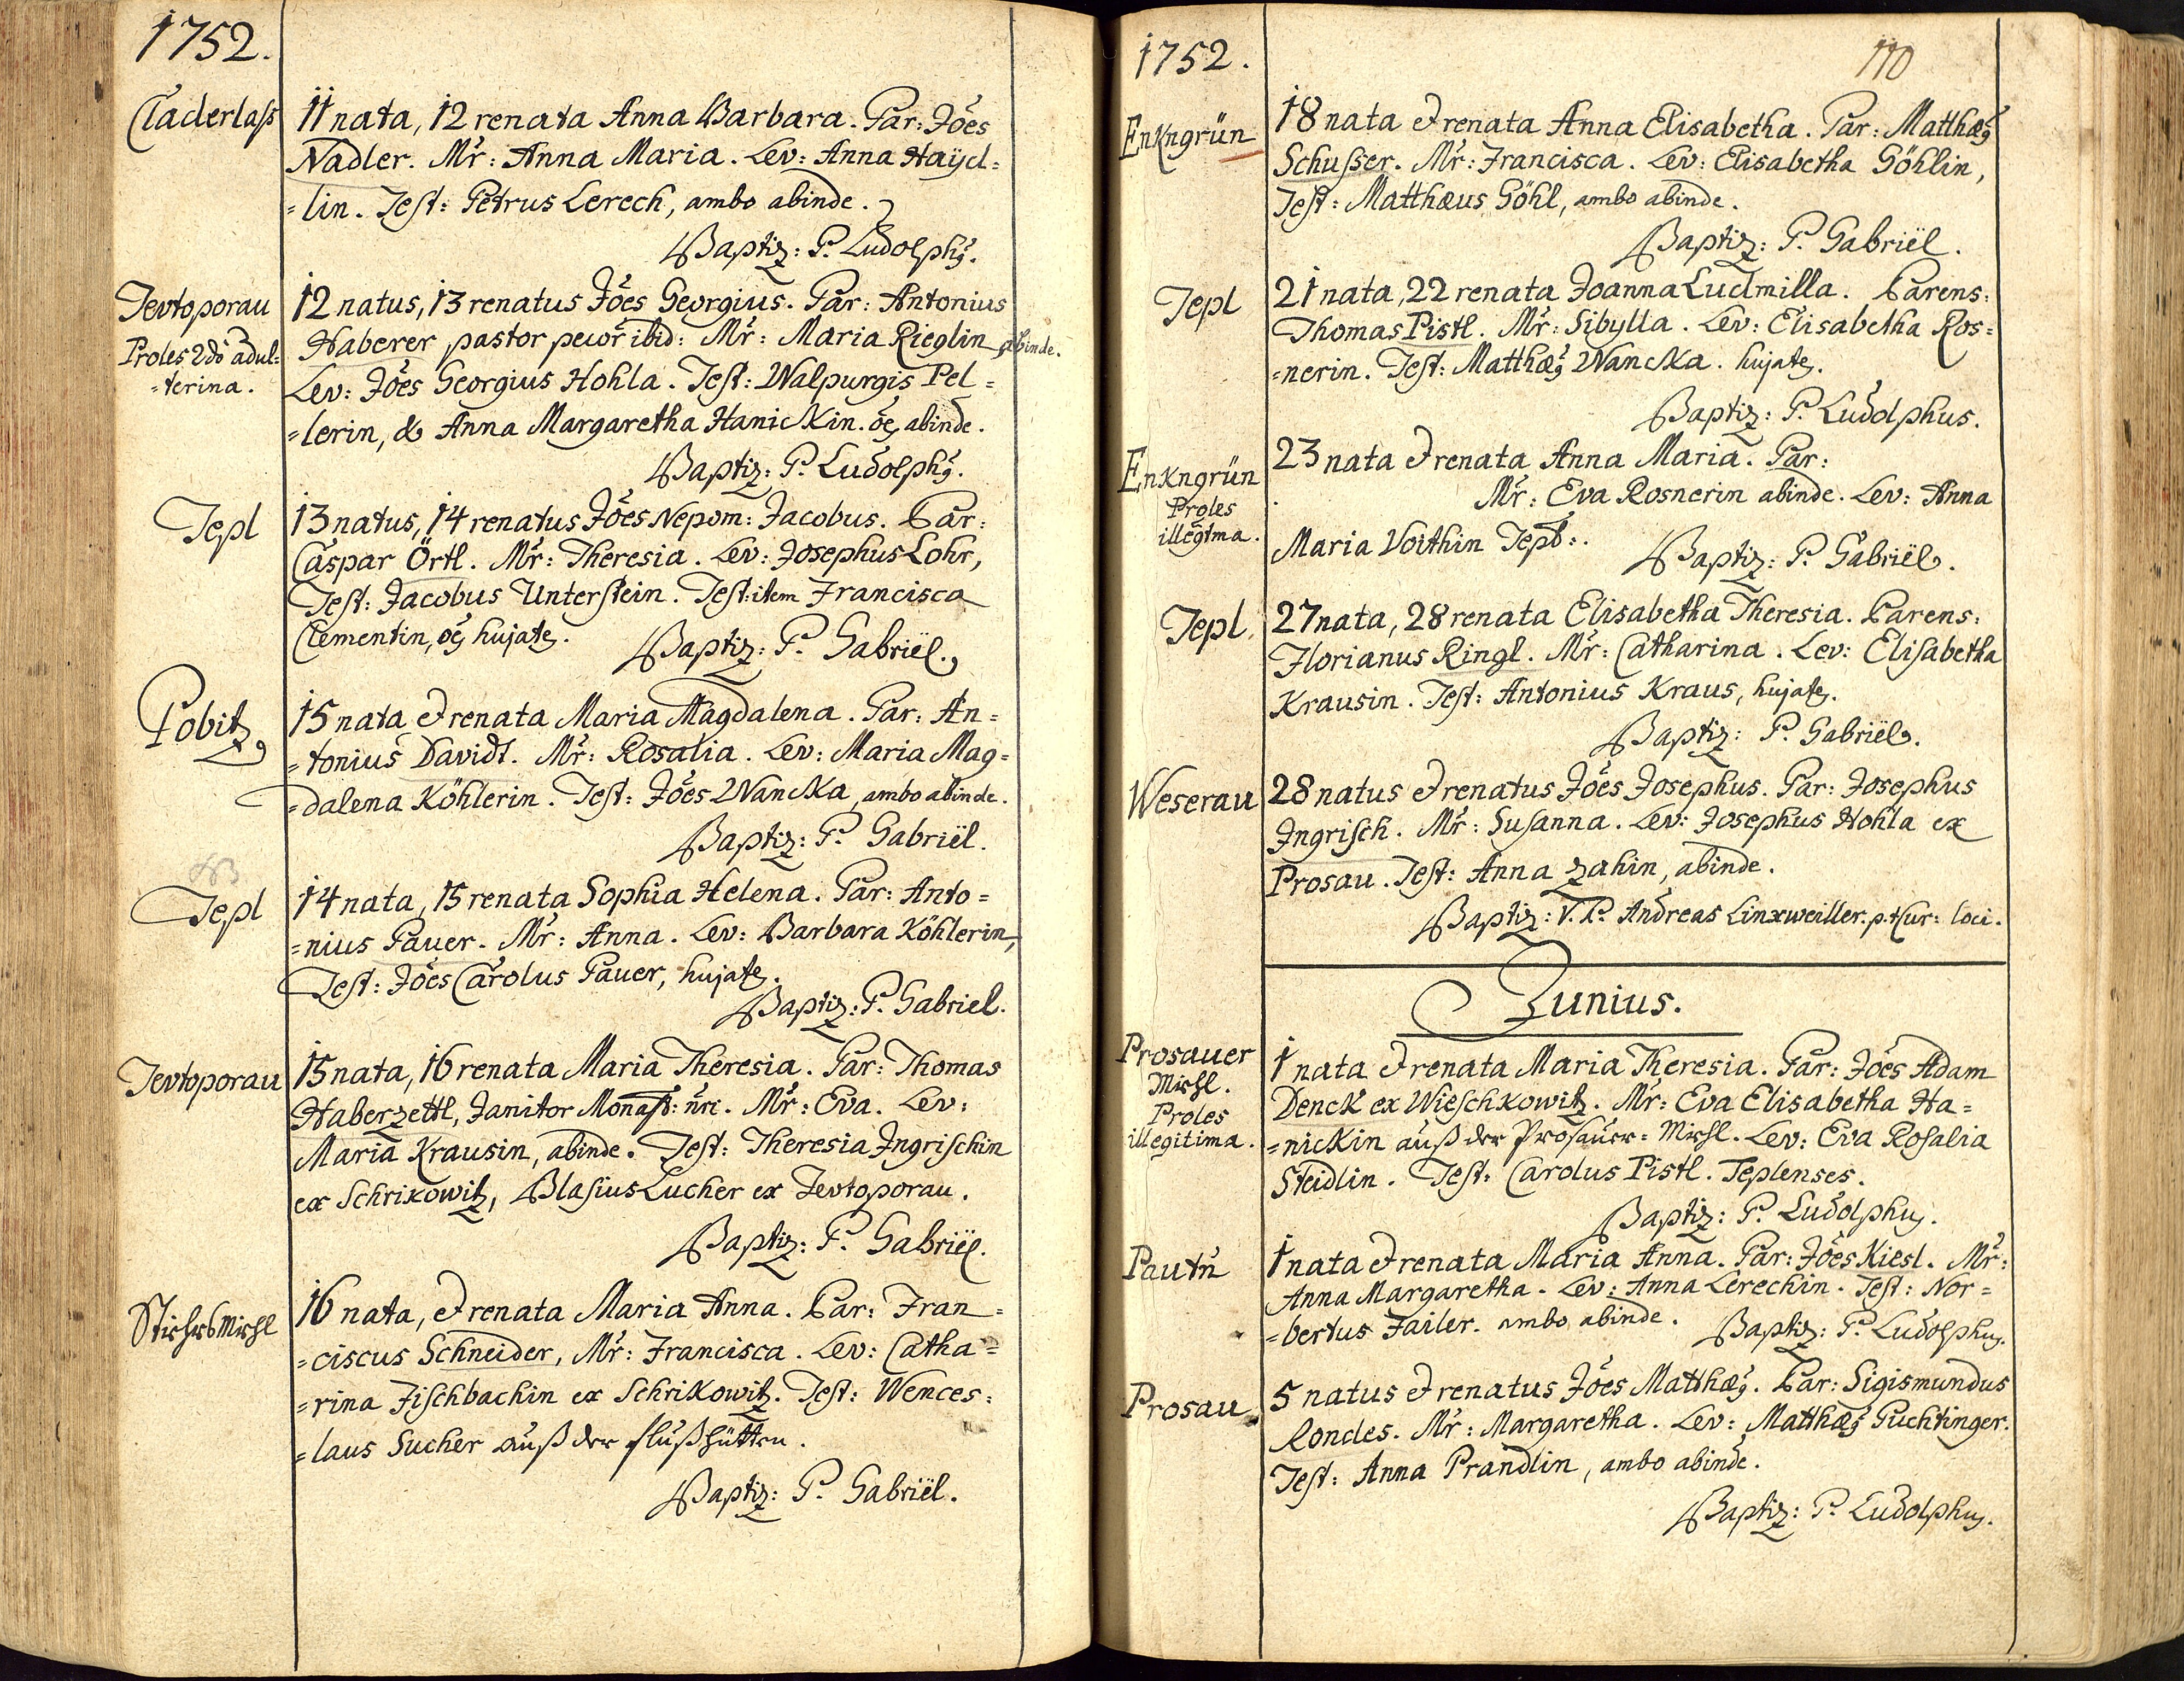 1752.
Claderlaß
11 nata, 12 renata Anna Barbara. Par: Jões
Nadler. Mr̃: Anna Maria. Lev: Anna Haÿd=
=lin. Test: Petrus Lerech, ambo abinde.
Baptiz: P. Ludolphꝯ.
Tevtoporau
Proles 2dò adul=
=terina.
12 natus, 13 renatus Jões Georgius. Par: Antonius
Haberer pastor pecor̃ ibid: Mr̃: Maria Rieglin abinde.
Lev: Jões Georgius Hohla. Test: Walpurgis Pel=
=lerin, & Anna Margaretha Hanickin. oẽs abinde.
Baptiz: P. Ludolphꝯ.
Tepl
13 natus, 14 renatus Jões Nepom: Jacobus. Par:
Caspar Örtl. Mr̃: Theresia. Lev: Josephus Lohr,
Test: Jacobus Unterstein. Test: item Francisca
Clementin, oẽs hujates.
Baptiz: P. Gabriël.
Pobitz
15 nata et renata Maria Magdalena. Par: An=
=tonius Davidt. Mr̃: Rosalia. Lev: Maria Mag=
=dalena Köhlerin. Test: Jões Wancka, ambo abinde.
Baptiz: P. Gabriël.
Tepl
14 nata, 15 renata Sophia Helena. Par: Anto=
=nius Pauer. Mr̃: Anna. Lev: Barbara Köhlerin,
Test: Jões Carolus Pauer, hujates.
Baptiz: P. Gabriel.
Tevtoporau
15 nata, 16 renata Maria Theresia. Par: Thomas
Haberzettl, Janitor Monast: nr̃i. Mr̃: Eva. Lev:
Maria Krausin, abinde. Test: Theresia Ingrischin
ex Schrikowitz, Blasius Lucher ex Tevtoporau.
Baptiz: P. Gabriël.
16 nata, et renata Maria Anna. Par: Fran=
=ciscus Schneider, Mr̃: Francisca. Lev: Catha=
=rina Fischbachin ex Schrikowitz. Test: Wences=
=laus Sucher auß der flußhütten.
Baptiz: P. Gabriël.
1752.
110
Enkngrün
18 nata et renata Anna Elisabetha. Par: Matthæꝯ
Schusser. Mr̃: Francisca. Lev: Elisabetha Göhlin,
Test: Matthæus Göhl, ambo abinde.
Baptiz: P. Gabriël.
Tepl
21 nata, 22 renata Joanna Ludmilla. Parens:
Thomas Pistl. Mr̃: Sibylla. Lev: Elisabetha Ros=
=nerin. Test: Matthæꝯ Wancka. hujates.
Baptiz: P. Ludolphus.
Enkngrün
Proles
illegtma.
23 nata et renata Anna Maria. Par:
Mr̃: Eva Rosnerin abinde. Lev: Anna
Maria Voithin Tepl:.
Baptiz: P. Gabriël.
Tepl
27 nata, 28 renata Elisabetha Theresia. Parens:
Florianus Ringl. Mr̃: Catharina. Lev: Elisabetha
Krausin. Test: Antonius Kraus, hujates.
Baptiz: P. Gabriël.
Weserau
28 natus et renatus Jões Josephus. Par: Josephus
Ingrisch. Mr̃: Susanna. Lev: Josephus Hohla ex
Prosau. Test: Anna Zahin, abinde.
Baptiz: V. P. Andreas Linxweiller. p. t. Cur: loci.
Junius.
Prosauer
Mühl.
Proles
illegitima.
1 nata et renata Maria Theresia. Par: Jões Adam
Denck ex Wieschkowitz. Mr̃: Eva Elisabetha Ha=
=nickin auß der Prosauer=Mühl. Lev: Eva Rosalia
Steidlin. Test: Carolus Pistl. Teplenses.
Baptiz: P. Ludolphus.
Pautñ
1 nata et renata Maria Anna. Par: Jões Kiesl. Mr̃:
Anna Margaretha. Lev: Anna Lerechin. Test: Nor=
=bertus Failer. ambo abinde. Baptiz: P. Ludolphus.
Prosau
5 natus et renatus Jões Matthæꝯ. Par: Sigismundus
Rondes. Mr̃: Margaretha. Lev: Matthæꝯ Puchtinger.
Test: Anna Prandlin, ambo abinde.
Baptiz: P. Ludolphus.